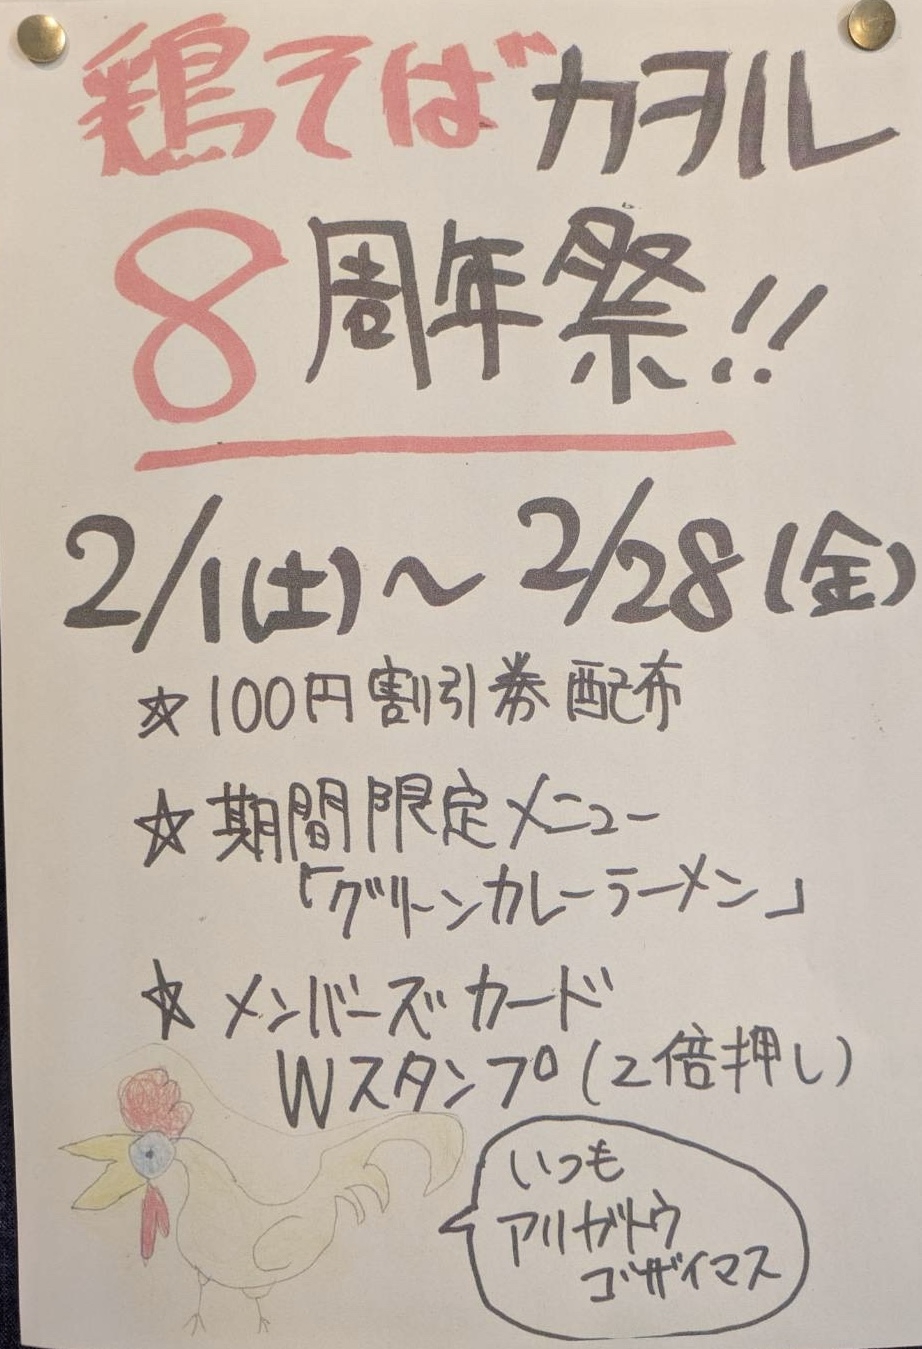 鶏そばカヲル
8周年祭!!
2/1(土)～2/28(金)
☆100円割引券配布
☆期間限定メニュー
「グリーンカレーラーメン」
☆メンバーズカード
Wスタンプ(2倍押し)
いつも
アリガトウ
ゴザイマス